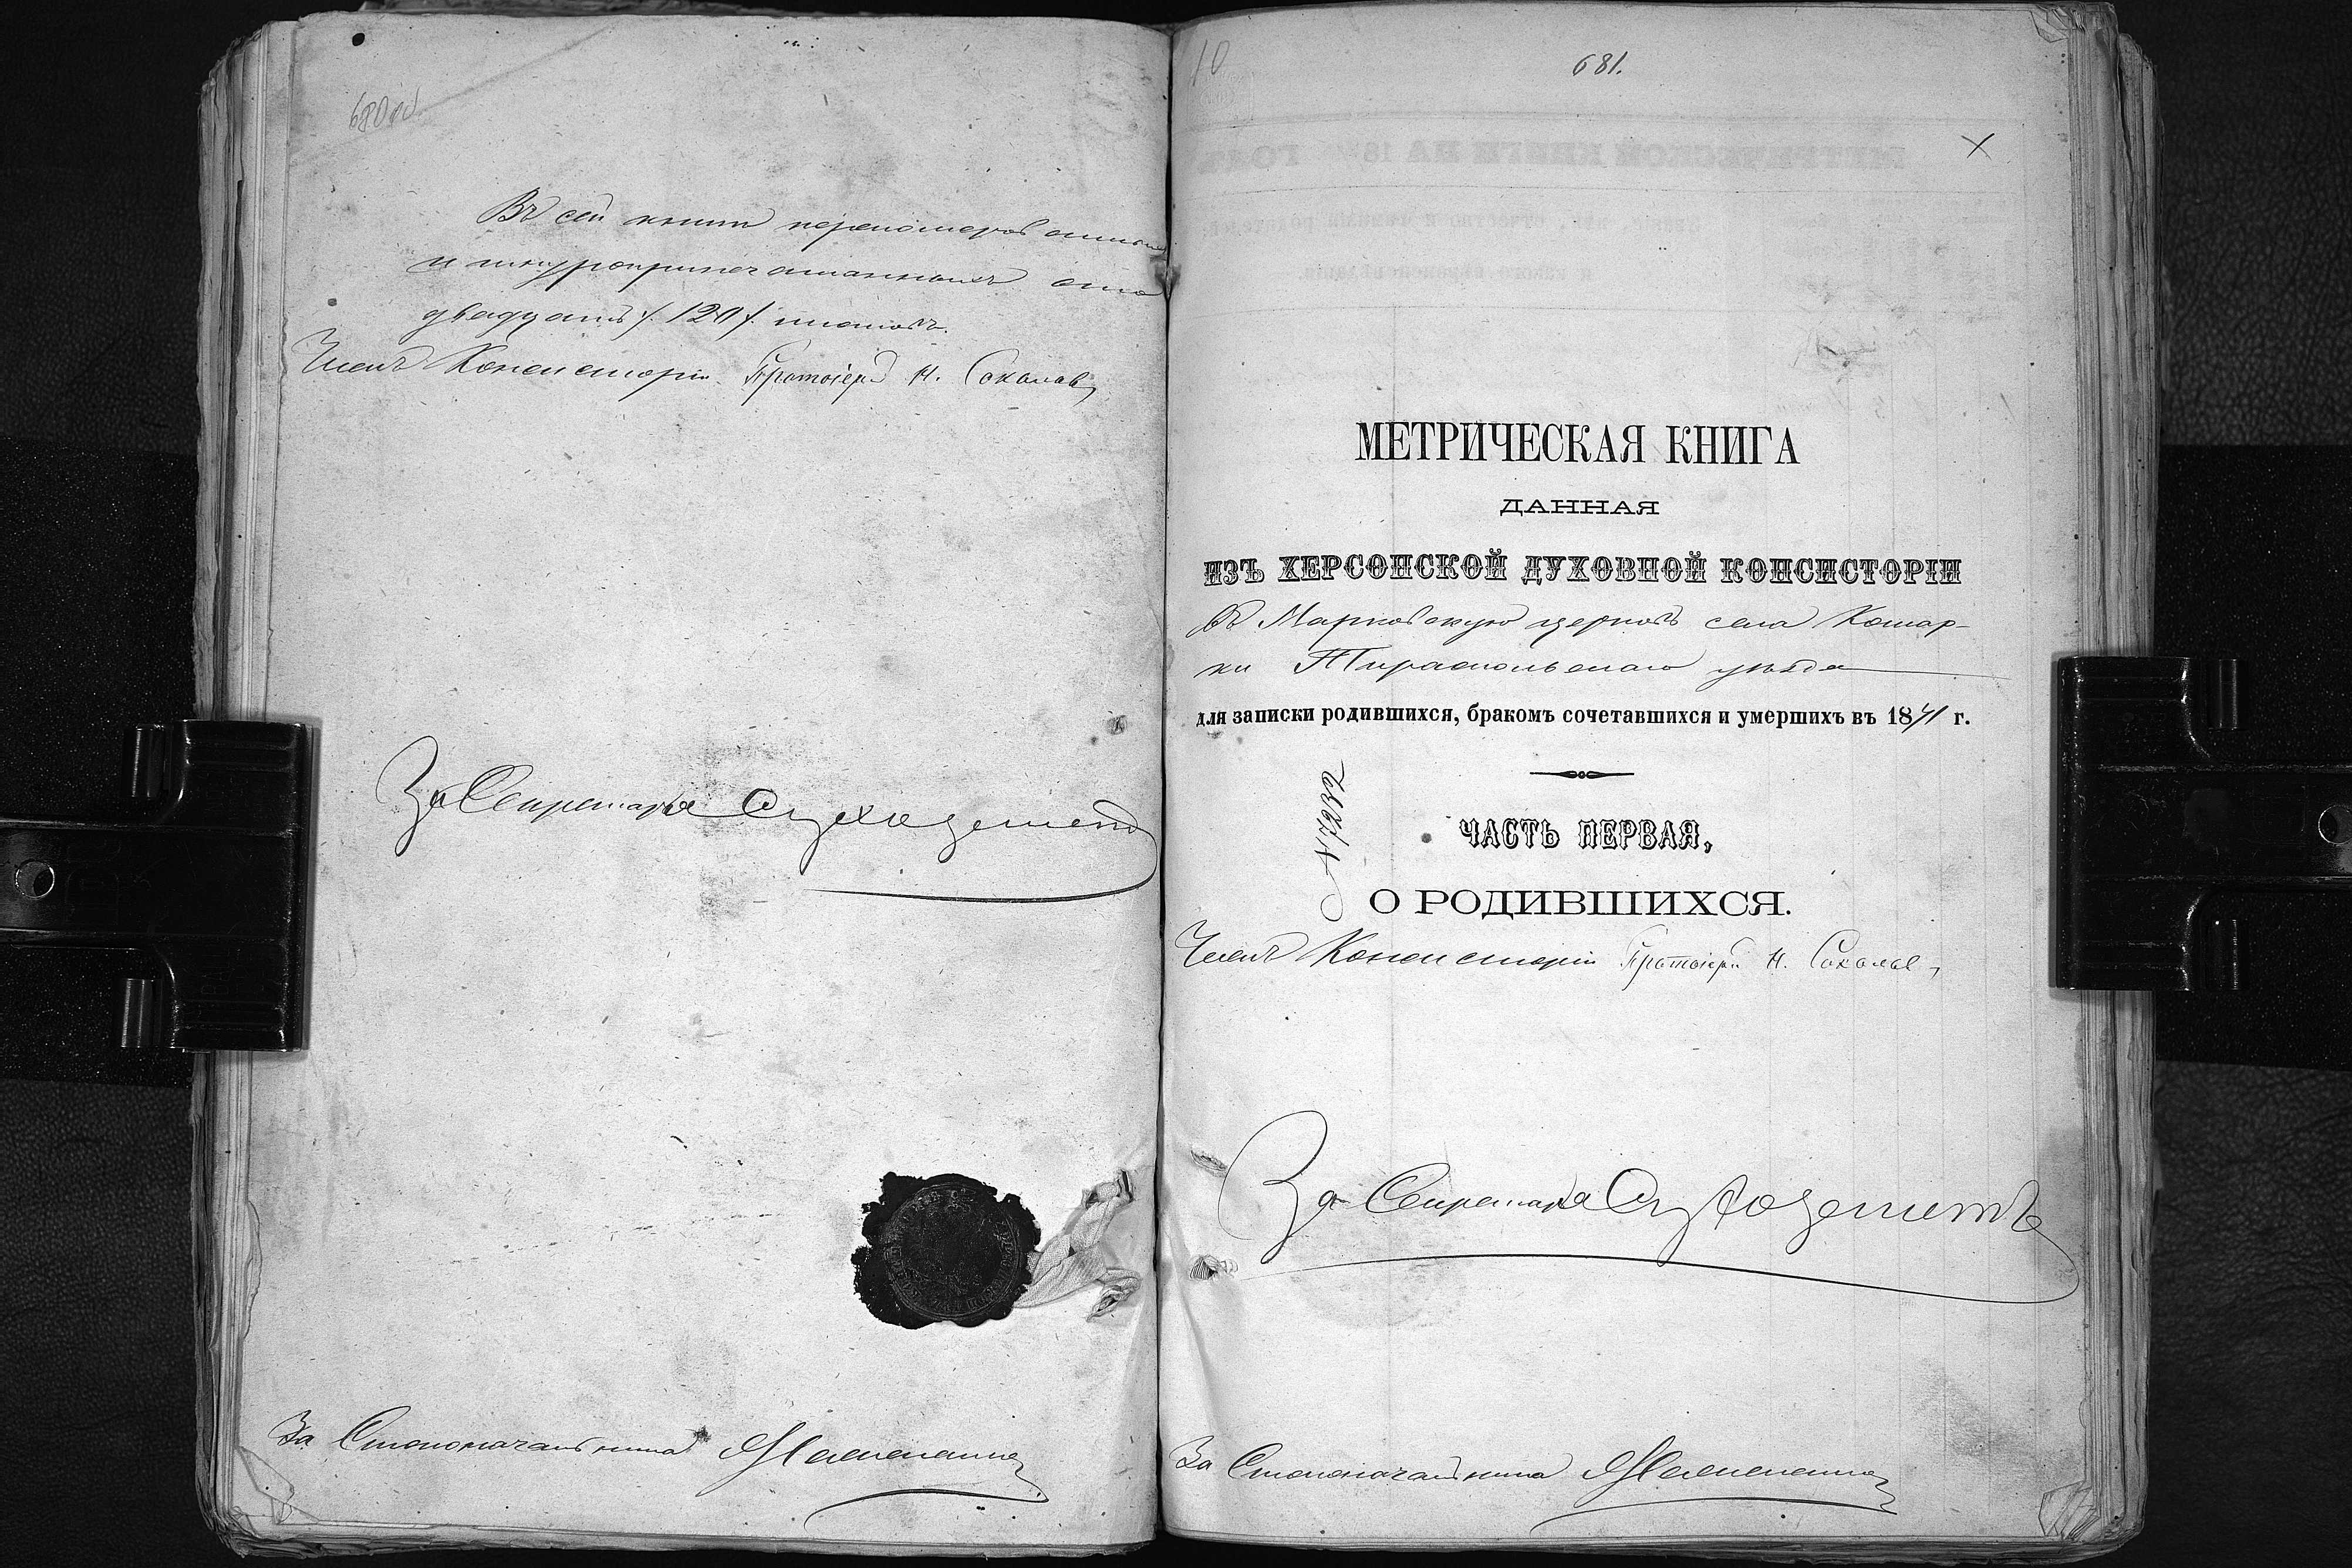 680 об
Въ сей книгѣ перенумерованныхъ
и шнуроприпечатанныхъ сто
двадцать /. 120 /. листовъ.
Членъ Консисторіи Протоіерей Н. Соколовъ
За Секретаря
За Столоначальника
10
681.
МЕТРИЧЕСКАЯ КНИГА
ДАННАЯ
ИЗЪ ХЕРСОНСКОЙ ДУХОВНОЙ КОНСИСТОРІИ
въ Марковскую церковь села Комар-
ки Тираспольскаго уѣзда
для записки родившихся, бракомъ сочетавшихся и умершихъ въ 1871 г.
№ 7232
ЧАСТЬ ПЕРВАЯ,
О РОДИВШИХСЯ.
Членъ Консисторіи Протоіерей Н. Соколовъ
За Секретаря
За Столоначальника